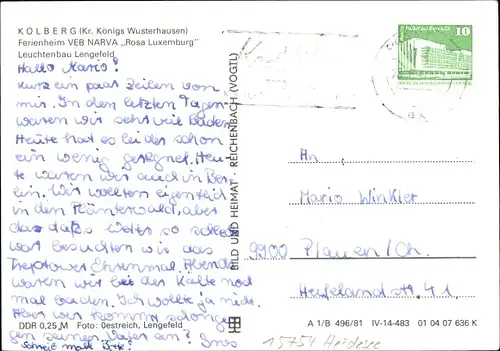 KOLBERG (Kr. Königs Wusterhausen)
Ferienheim VEB NARVA „Rosa Luxemburg"
Leuchtenbau Lengefeld
Hallo Mario!
Kurz ein paar Zeilen von
mir. In den letzten Tagen
waren wir sehr viel baden.
Heute hat es leider schon
ein wenig geregnet. Heu-
te waren wir auch in Ber-
lin. Wir wollten eigentlich
in den Plänterwald, aber
da das Wetter so schlecht
war besuchten wir das
Treptower Ehrenmal. Abends
waren wir bei der Kälte noch
mal baden. Ich wollte ja nicht.
Aber wer kommt schon
gegen seinen Vater an?
schreib mal! Bitte!
DDR 0,25 M Foto: Oestreich, Lengefeld
BILD UND HEIMAT · REICHENBACH (VOGTL)
10
An
Mario Winkler
9900 Plauen/Ch.
Hufelandstr. 41
A 1/B 496/81 IV-14-483 01 04 07 636 K
15754 Heidesee